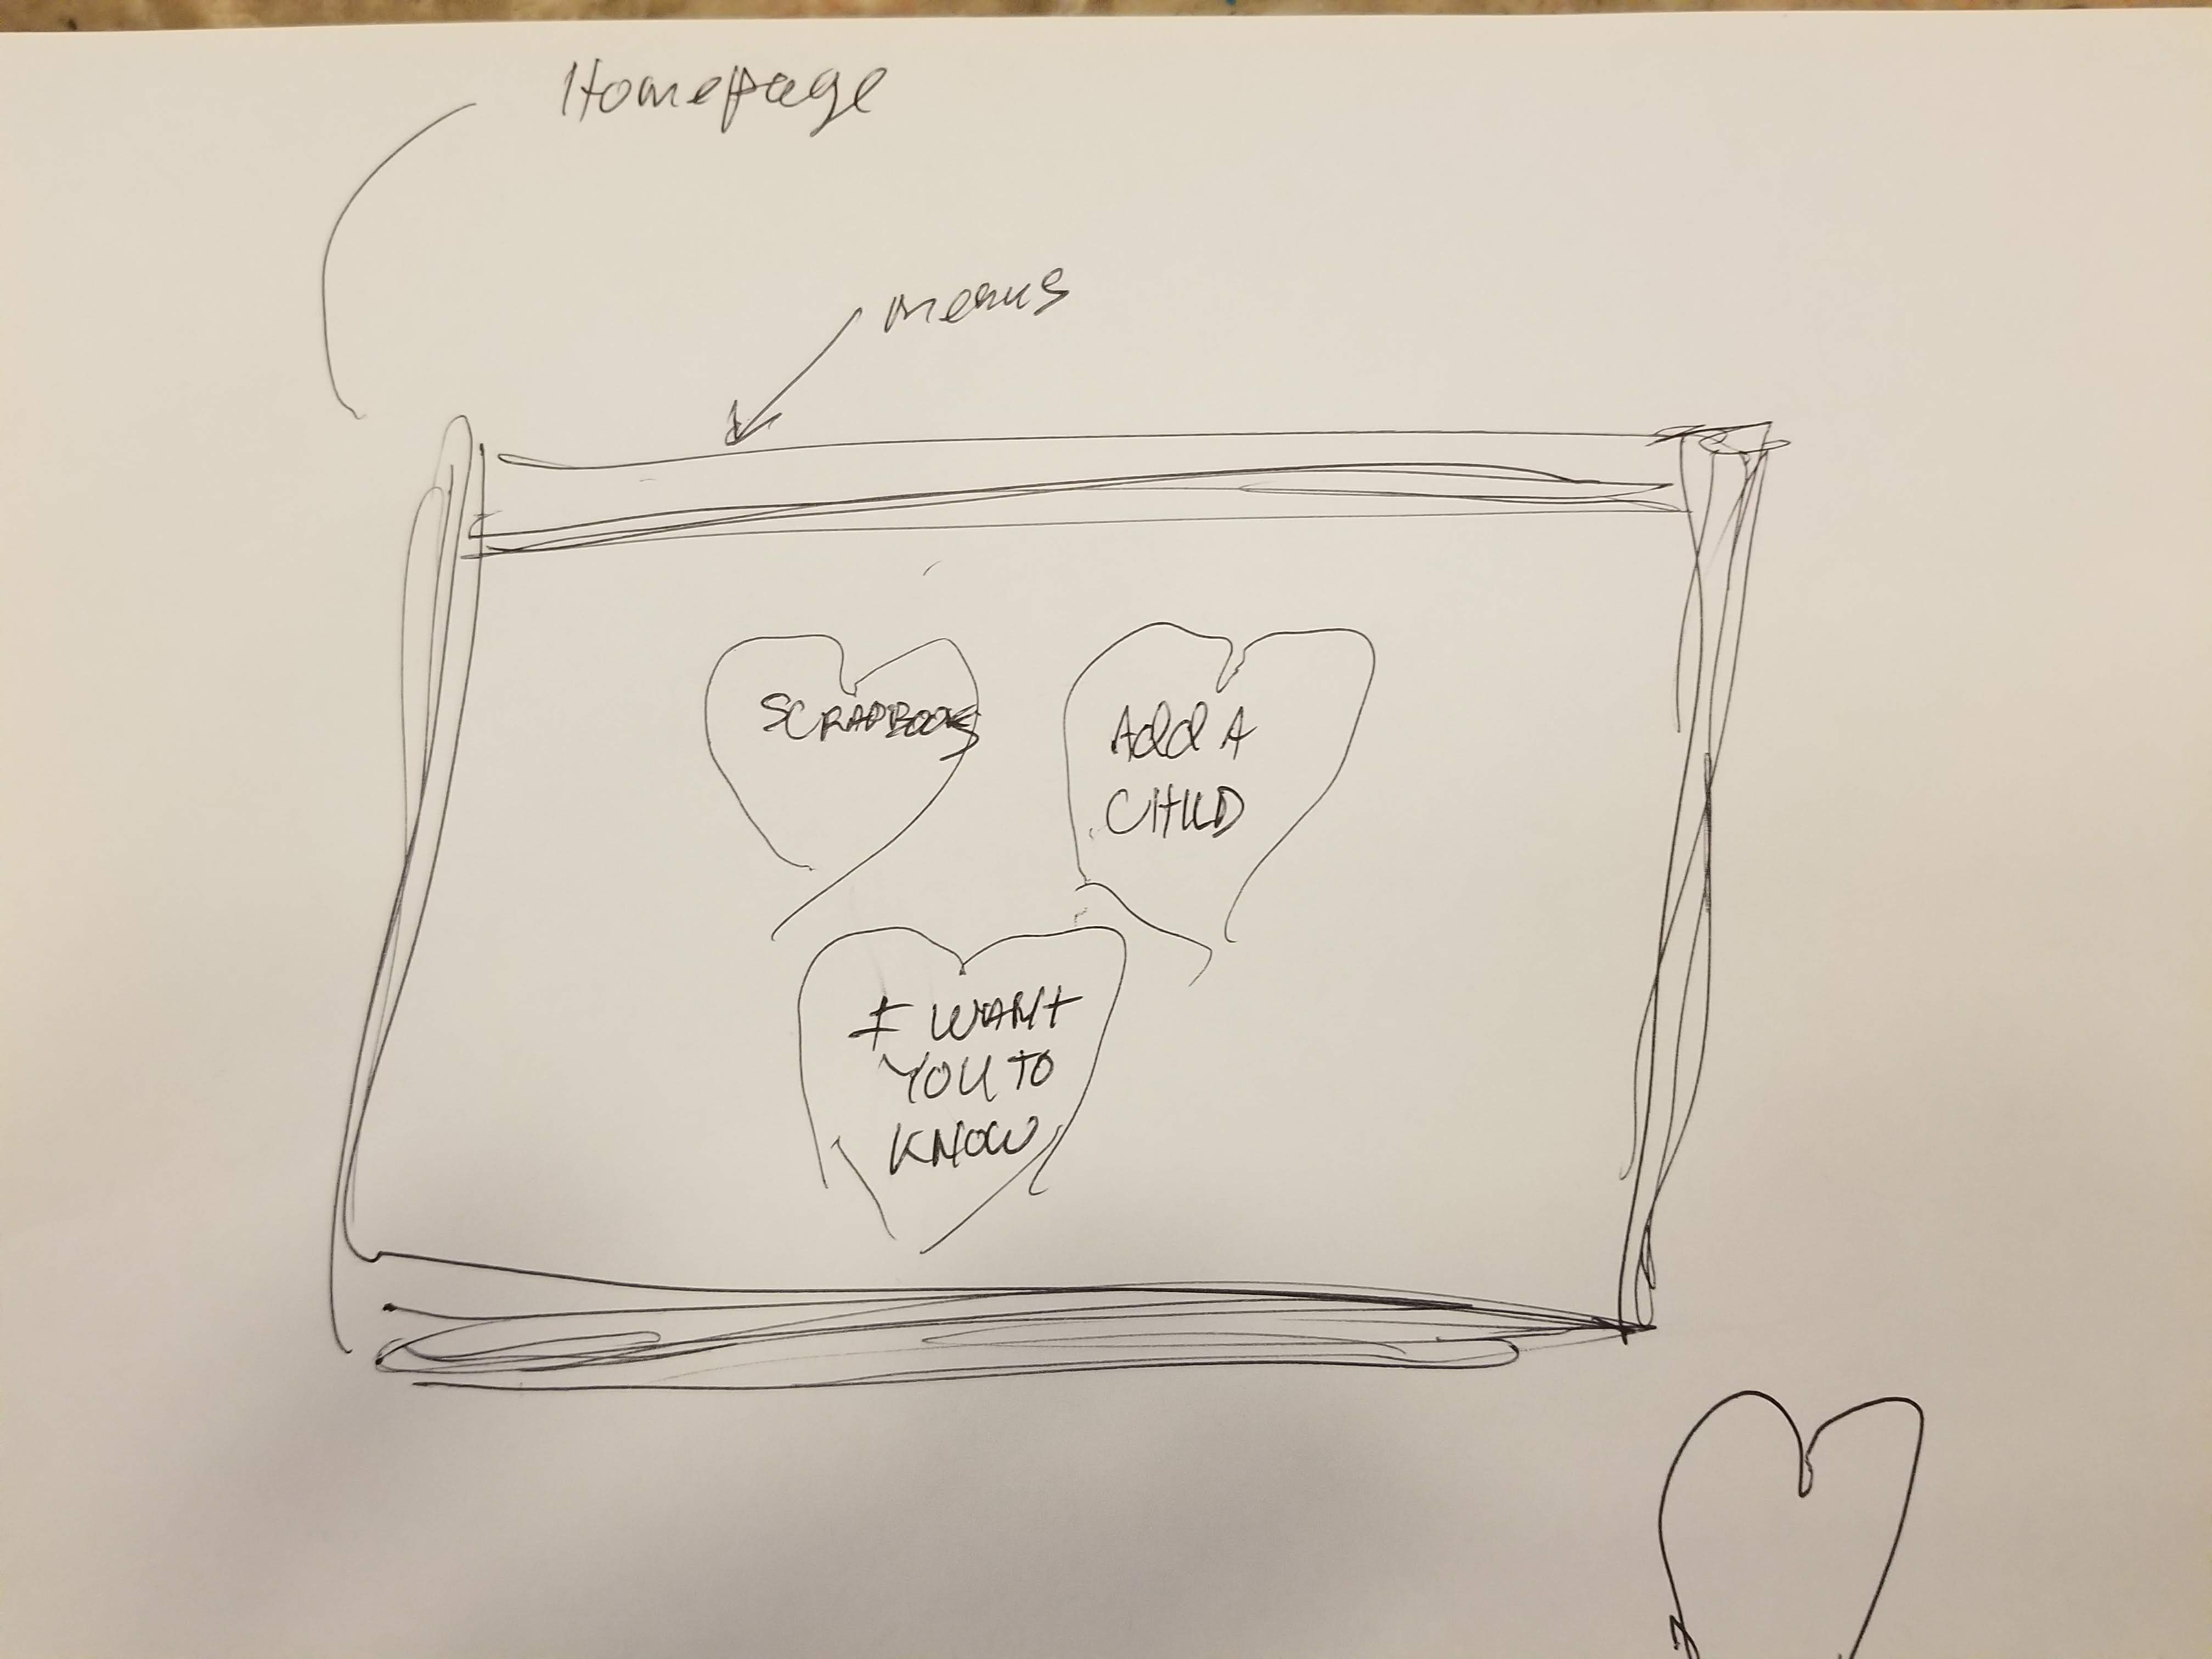 Homepage
menus
SCRAPBOOK
Add A
CHILD
I WANT
YOU TO
KNOW